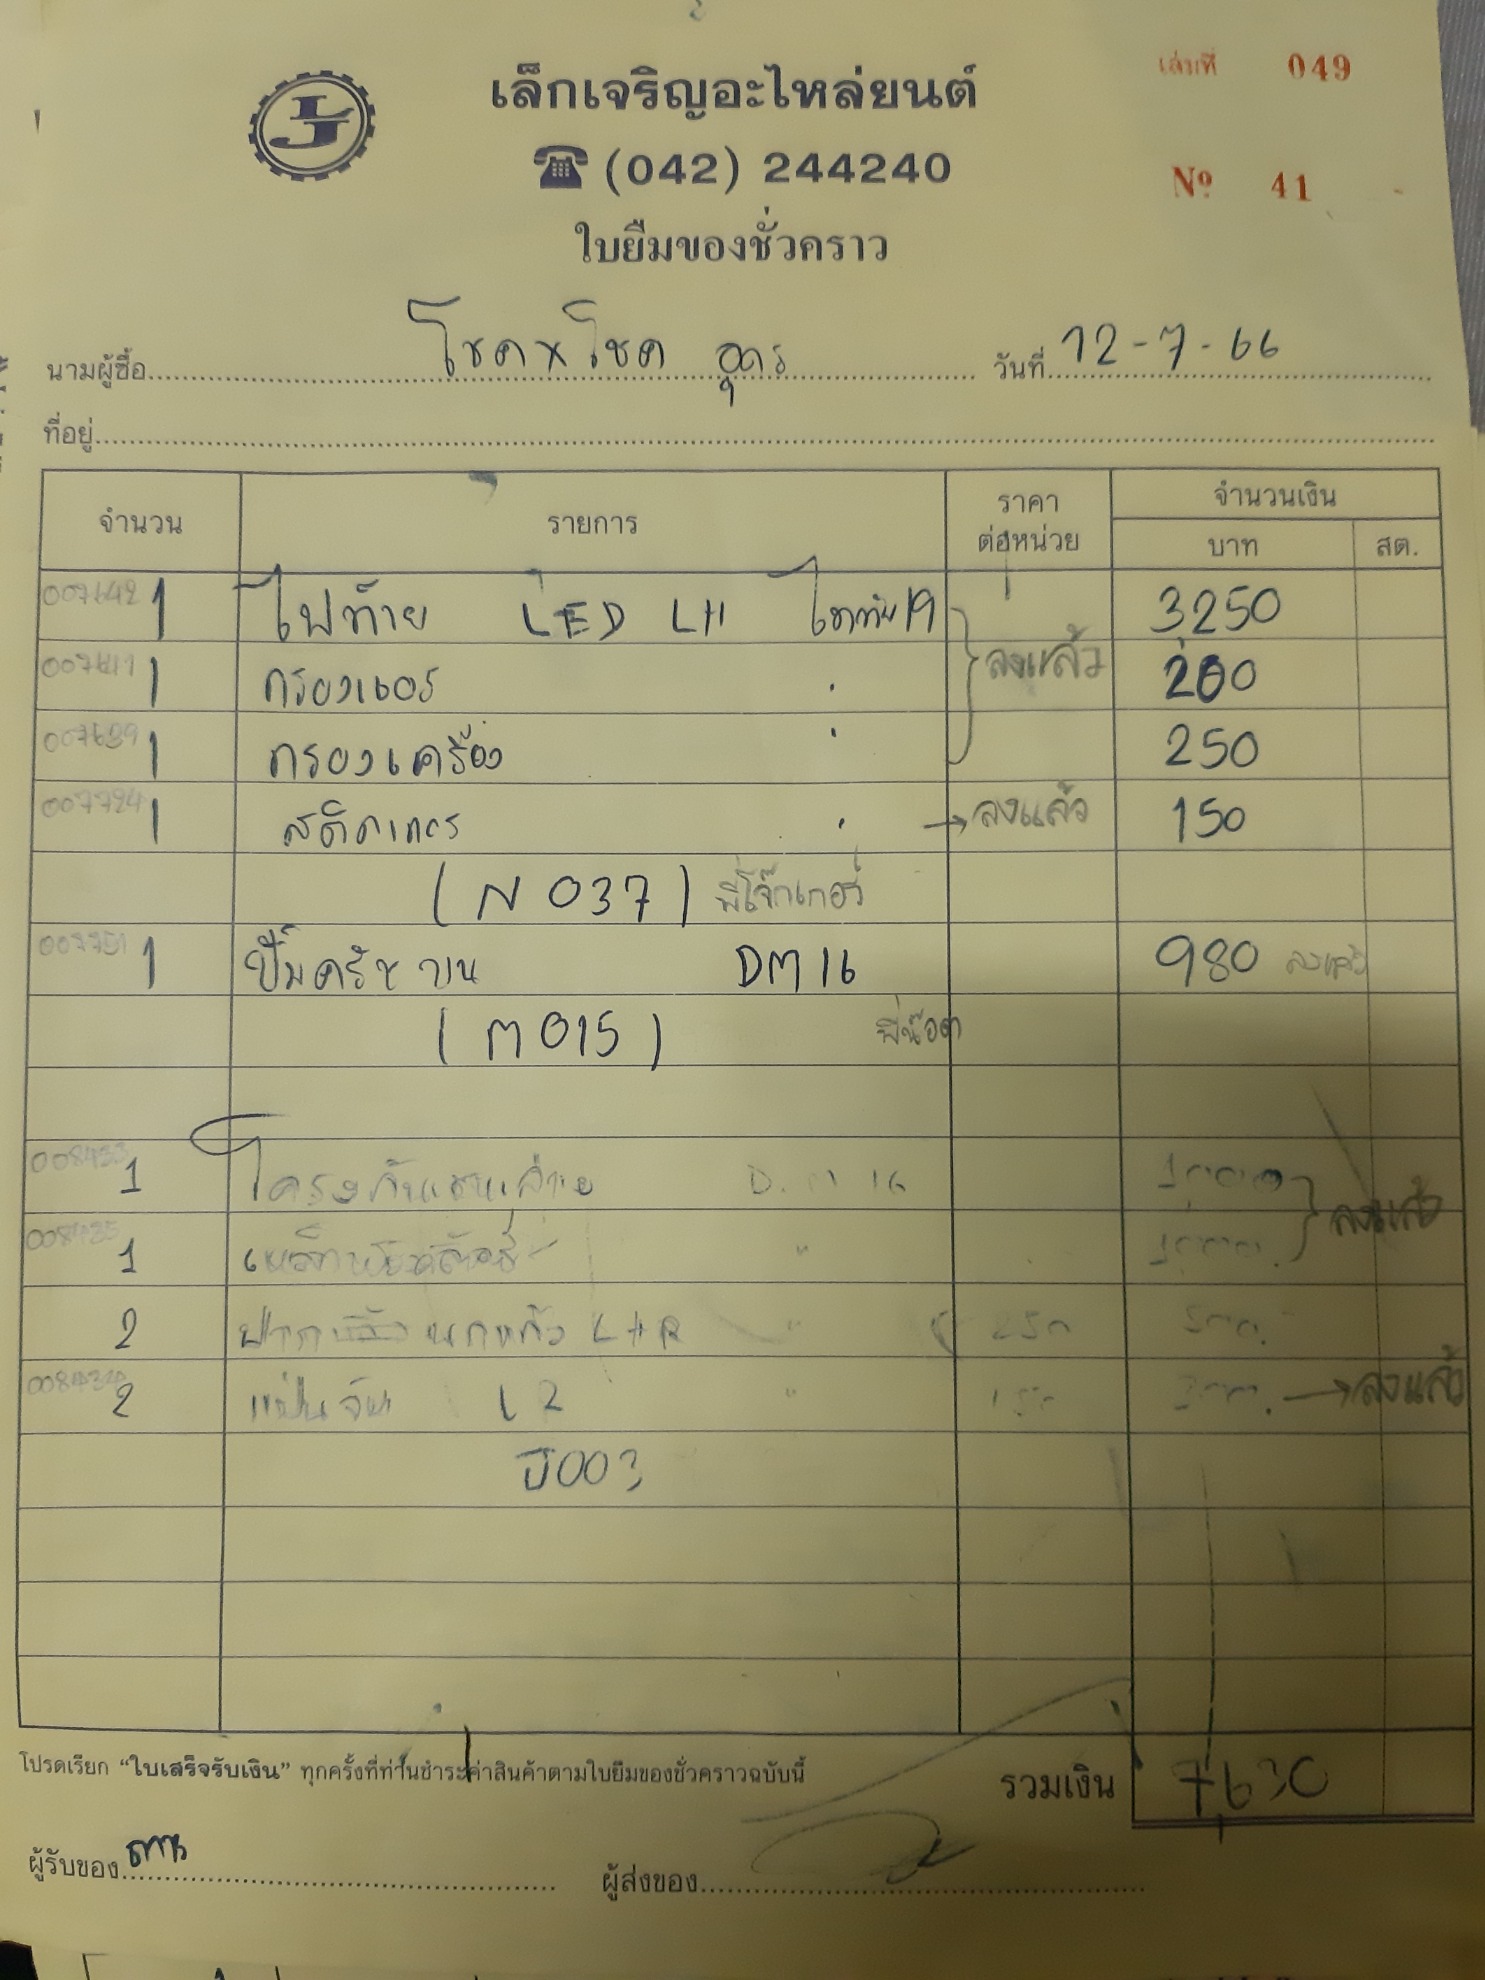 เล่มที่ 049
เล็กเจริญอะไหล่ยนต์
(042) 244240
Nº 41
ใบยืมของชั่วคราว
นามผู้ซื้อ โชคxโชค อุดร วันที่ 12-7-66
ที่อยู่
จำนวน รายการ ราคาต่อหน่วย จำนวนเงิน
บาท สต.
007642 1 ไฟท้าย LED LH ไททัน19 3,250
1 กรองแอร์ " ลงแล้ว 200
007639 1 กรองเครื่อง " 250
007724 1 สติกเกอร์ " → ลงแล้ว 150
(N037) พี่โจ๊กเกอร์
007751 1 ปั๊มครัชบน DM16 980 ลงแล้ว
(M015) พี่น๊อต
1 D.M 16 1,000
1 " 1,000 ลงแล้ว
2 L+R " 250 500.
008434 2 " 150 300. → ลงแล้ว
ปี003
โปรดเรียก "ใบเสร็จรับเงิน" ทุกครั้งที่ท่านชำระค่าสินค้าตามใบยืมของชั่วคราวฉบับนี้ รวมเงิน 7,630
ผู้รับของ ผู้ส่งของ